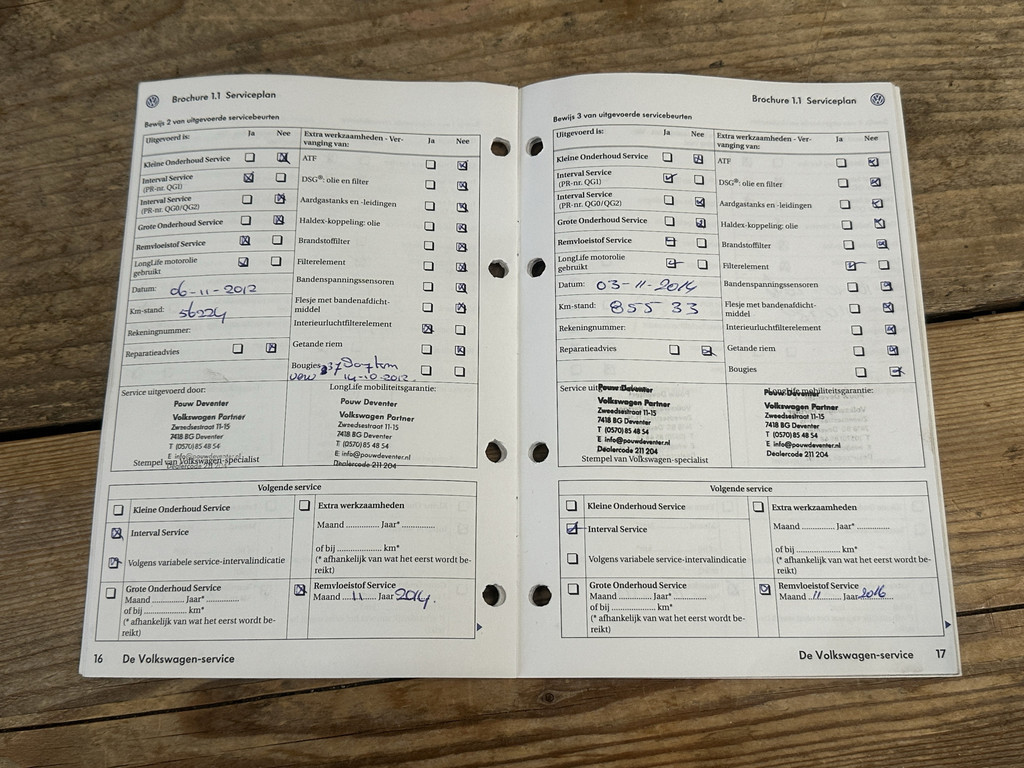 Brochure 1.1 Serviceplan
Bewijs 2 van uitgevoerde servicebeurten
Uitgevoerd is: Ja Nee
Kleine Onderhoud Service
Interval Service
(PR-nr. QG1)
Interval Service
(PR-nr. QG0/QG2)
Grote Onderhoud Service
Remvloeistof Service
LongLife motorolie
gebruikt
Datum: 06-11-2012
Km-stand: 56224
Rekeningnummer:
Reparatieadvies
Extra werkzaamheden - Ver-
vanging van: Ja Nee
ATF
DSG®: olie en filter
Aardgastanks en -leidingen
Haldex-koppeling: olie
Brandstoffilter
Filterelement
Bandenspanningssensoren
Flesje met bandenafdicht-
middel
Interieurluchtfilterelement
Getande riem
Bougies
14-10-2012.
Service uitgevoerd door:
Pouw Deventer
Volkswagen Partner
Zweedsestraat 11-15
7418 BG Deventer
T (0570) 85 48 54
E info@pouwdeventer.nl
Dealercode 211 204
Stempel van Volkswagen-specialist
LongLife mobiliteitsgarantie:
Pouw Deventer
Volkswagen Partner
Zweedsestraat 11-15
7418 BG Deventer
T (0570) 85 48 54
E info@pouwdeventer.nl
Dealercode 211 204
Volgende service
Kleine Onderhoud Service
Interval Service
Volgens variabele service-intervalindicatie
Grote Onderhoud Service
Maand ............ Jaar* ............
of bij ........................ km*
(* afhankelijk van wat het eerst wordt be-
reikt)
Extra werkzaamheden
Maand ............ Jaar* ............
of bij ........................ km*
(* afhankelijk van wat het eerst wordt be-
reikt)
Remvloeistof Service
Maand 11 Jaar 2014.
16 De Volkswagen-service
Brochure 1.1 Serviceplan
Bewijs 3 van uitgevoerde servicebeurten
Uitgevoerd is: Ja Nee
Kleine Onderhoud Service
Interval Service
(PR-nr. QG1)
Interval Service
(PR-nr. QG0/QG2)
Grote Onderhoud Service
Remvloeistof Service
LongLife motorolie
gebruikt
Datum: 03-11-2014
Km-stand: 855 33
Rekeningnummer:
Reparatieadvies
Extra werkzaamheden - Ver-
vanging van: Ja Nee
ATF
DSG®: olie en filter
Aardgastanks en -leidingen
Haldex-koppeling: olie
Brandstoffilter
Filterelement
Bandenspanningssensoren
Flesje met bandenafdicht-
middel
Interieurluchtfilterelement
Getande riem
Bougies
Pouw Deventer
Volkswagen Partner
Zweedsestraat 11-15
7418 BG Deventer
T (0570) 85 48 54
E info@pouwdeventer.nl
Dealercode 211 204
Stempel van Volkswagen-specialist
LongLife mobiliteitsgarantie:
Pouw Deventer
Volkswagen Partner
Zweedsestraat 11-15
7418 BG Deventer
T (0570) 85 48 54
E info@pouwdeventer.nl
Dealercode 211 204
Volgende service
Kleine Onderhoud Service
Interval Service
Volgens variabele service-intervalindicatie
Grote Onderhoud Service
Maand ............ Jaar* ............
of bij ........................ km*
(* afhankelijk van wat het eerst wordt be-
reikt)
Extra werkzaamheden
Maand ............ Jaar* ............
of bij ........................ km*
(* afhankelijk van wat het eerst wordt be-
reikt)
Remvloeistof Service
Maand 11 Jaar 2016
De Volkswagen-service 17